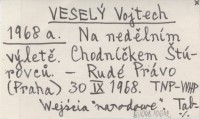 VESELÝ Vojtech
1968 a. Na nedělním
výletě. Chodníčkem Štú-
rovců. – Rudé Právo
(Praha) 30 IX 1968. TNP-WHP
Wejścia "narodowe". Tab.